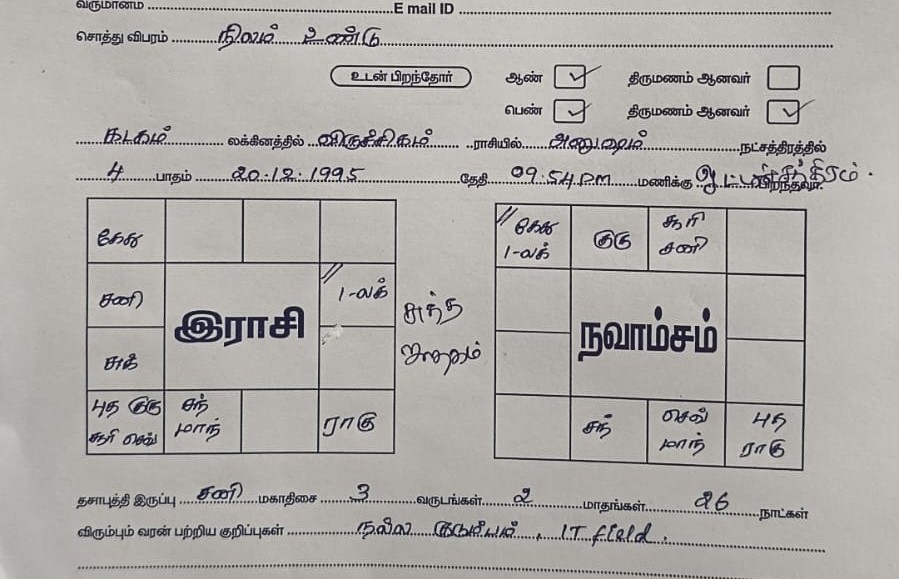 வருமானம் ........ E mail ID ........
சொத்து விபரம் ........ நிலம் உண்டு ........
உடன் பிறந்தோர் ஆண் ✓ திருமணம் ஆனவர்
பெண் ✓ திருமணம் ஆனவர் ✓
கடகம் லக்கினத்தில் விருச்சிகம் ராசியில் அனுஷம் நட்சத்திரத்தில்
4 பாதம் 20.12.1995 தேதி 09:54 PM மணிக்கு பிறந்தவர்.
கேது
சனி 1-லக்
இராசி
சுக்
புத குரு சந் ராகு
சூரி செவ் மாந்
சுத்த
ஜாதகம்
கேது குரு சூரி
1-லக் சனி
நவாம்சம்
சந் செவ் புத
மாந் ராகு
தசாபுத்தி இருப்பு சனி மகாதிசை 3 வருடங்கள் 2 மாதங்கள் 26 நாட்கள்
விரும்பும் வரன் பற்றிய குறிப்புகள் நல்ல குடும்பம், IT field.